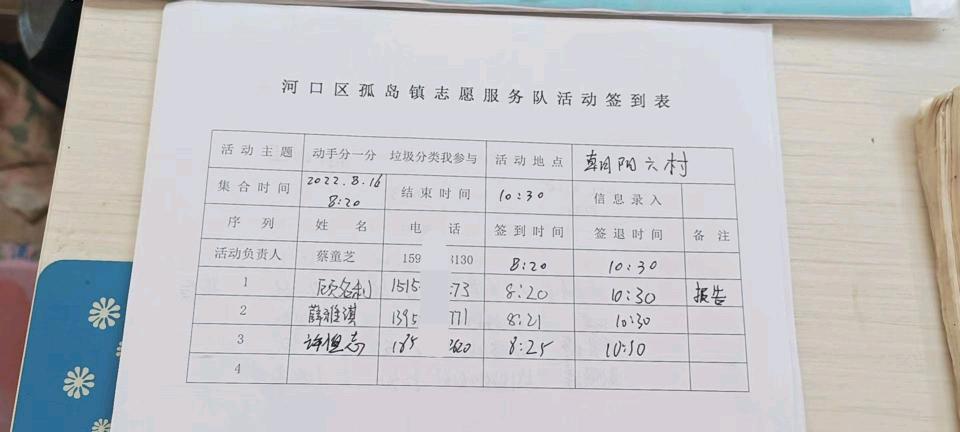 河口区孤岛镇志愿服务队活动签到表
活动主题 动手分一分 垃圾分类我参与 活动地点 朝阳六村
集合时间 2022.8.16 8:20 结束时间 10:30 信息录入
序列 姓名 电话 签到时间 签退时间 备注
活动负责人 蔡童芝 159 3130 8:20 10:30
1 顾名利 1515 73 8:20 10:30 报告
2 薛雅淇 1395 771 8:21 10:30
3 许恒志 185 8:25 10:30
4